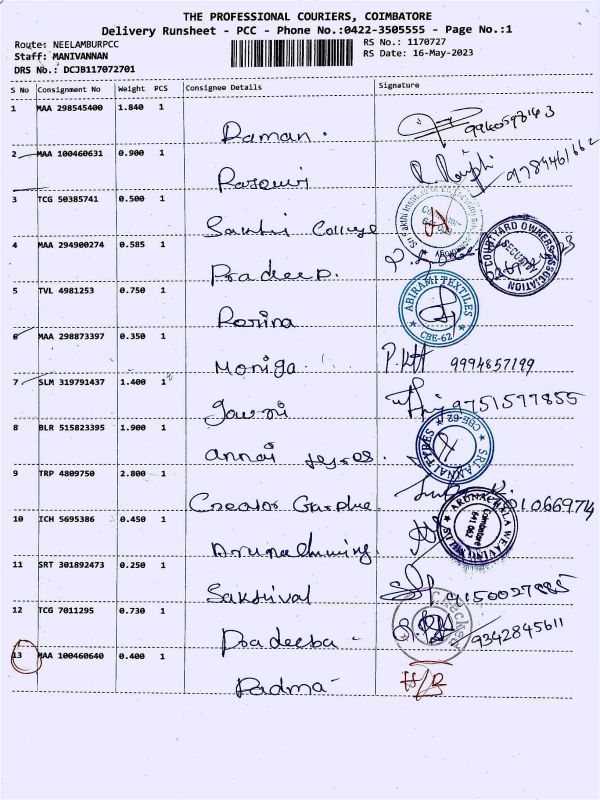 THE PROFESSIONAL COURIERS, COIMBATORE
Delivery Runsheet - PCC - Phone No.:0422-3505555 - Page No.:1
Route: NEELAMBURPCC
RS No.: 1170727
Staff: MANIVANNAN
RS Date: 16-May-2023
DRS No.: DCJB117072701
S No Consignment No Weight PCS Consignee Details Signature
1 MAA 298545400 1.840 1
Raman.
2 MAA 100460631 0.900 1
9789461662
3 TCG 50385741 0.500 1
Sakthi College
4 MAA 294900274 0.585 1
Pradeep.
COURTYARD OWNERS ASSOCIATION
SECURITY
5 TVL 4981253 0.750 1
Rosina
ABIRAMI TEXTILES
CBE-62
6 MAA 298873397 0.350 1
Moniga.
9994857199
7 SLM 319791437 1.400 1
Gowri
9751577855
8 BLR 515823395 1.900 1
Annai tyres.
SRI ANNAI TYRES
CBE-62
9 TRP 4809750 2.800 1
Creator
10 ICH 5695386 0.450 1
ARUNACHALA WEAVING MILLS
Coimbatore
641 062
11 SRT 301892473 0.250 1
Sakthival
9150027885
12 TCG 7011295 0.730 1
Pradeeba -
9342845611
13 MAA 100460640 0.400 1
Padma -